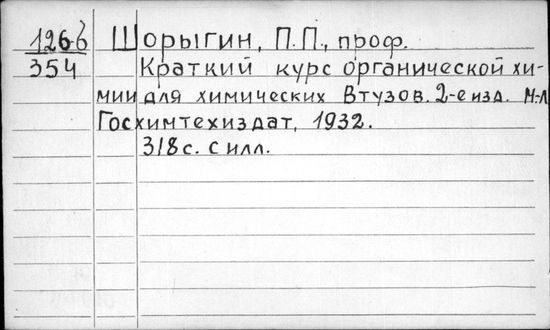 126б Шорыгин, П.П., проф.
354 Краткий курс органической хи-
мии для химических Втузов. 2-е изд. М-Л
Госхимтехиздат, 1932.
318с. с илл.